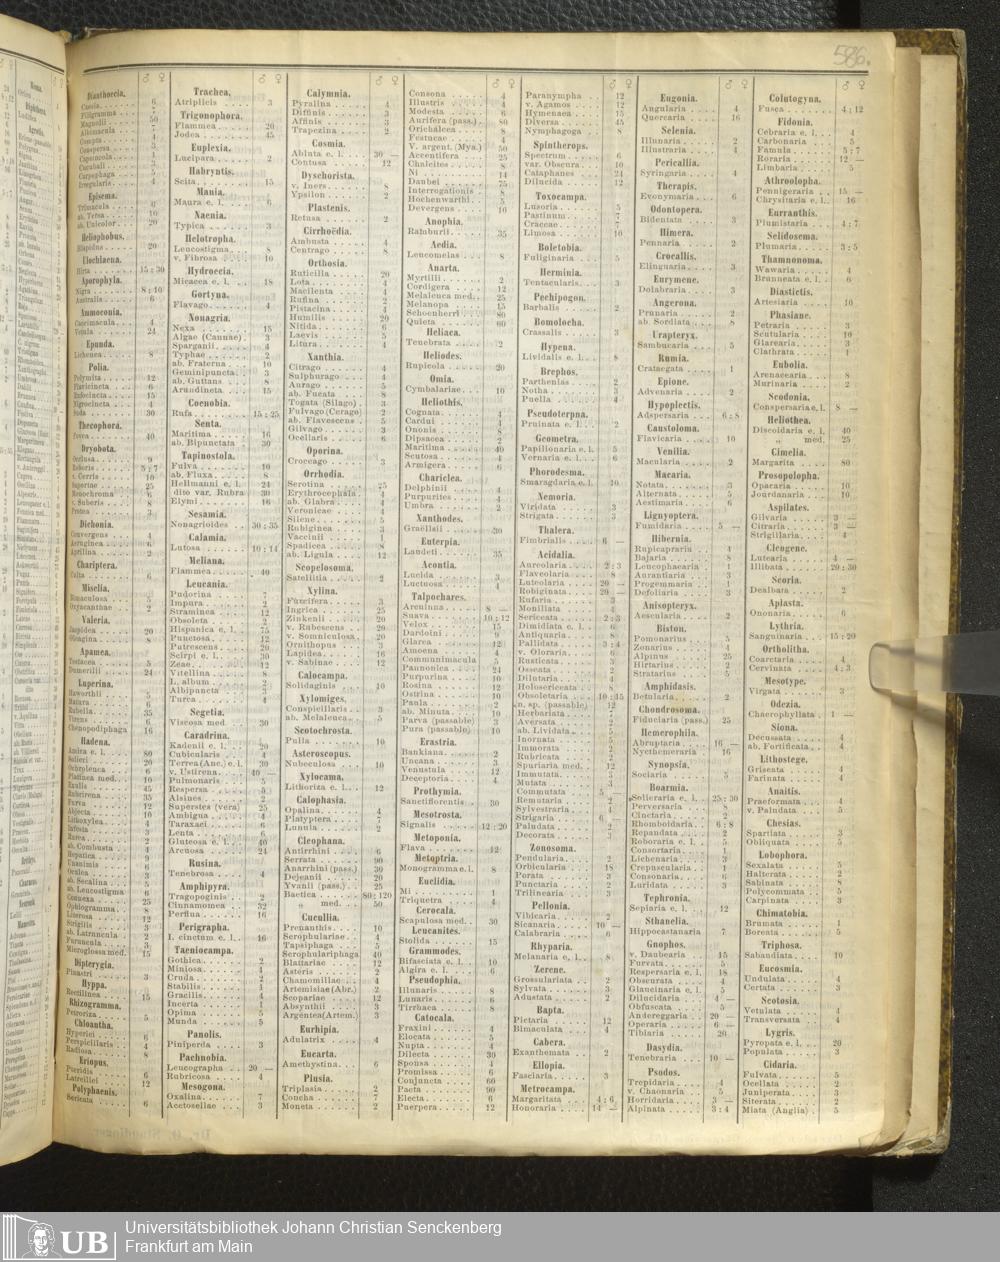 586.
♂ ♀
Dianthoecia.
Caesia . . . 6
Filigramma . . . 5
Magnolii . . . 50
Albimacula . . . 4
Compta . . . 3
Conspersa . . .
Capsincola . . .
Cucubali . . . 3
Carpophaga . . . 5
Irregularis . . . 4
Episema.
Trimacula . . . 6
ab. Tersa . . . 10
ab. Unicolor . . . 20
Heliophobus.
Hispidus . . . 20
Ulochlaena.
Hirta . . . 15 : 30
Aporophyla.
Nigra . . . 8 : 10
Australis . . . 6
Ammoconia.
Caecimacula . . . 4
Vetula . . . 24
Epunda.
Lichenea . . . 8
Polia.
Polymita . . . 12
Flavicincta . . . 6
Rufocincta . . . 15
Nigrocincta . . . 4
Suda . . . 30
Thecophora.
Fovea . . . 40
Dryobota.
Occlusa . . . 9
Roboris . . . 5 : 7
v. Cerris . . . 10
Saportae . . . 25
Monochroma . . . 6
v. Suberis . . . 8
Protea . . . 3
Dichonia.
Convergens . . . 4
Aeruginea . . . 6
Aprilina . . . 2
Chariptera.
Culta . . . 6
Miselia.
Bimaculosa . . . 5
Oxyacanthae . . . 2
Valeria.
Jaspidea . . . 20
Oleagina . . . 8
Apamea.
Testacea . . . 5
Dumerilii . . . 24
Luperina.
Haworthii . . . 5
Matura . . . 6
Rubella . . . 35
Virens . . . 6
Chenopodiphaga 16
Hadena.
Amica e. l. . . . 80
Solieri . . . 20
Ochroleuca . . . 6
Platinea med. . . 10
Exulis . . . 45
Rubrirena . . . 35
Furva . . . 12
Abjecta . . . 10
Lithoxylea . . . 4
Infesta . . . 3
Rurea . . . 2
ab. Combusta . . 4
Hepatica . . . 9
Unanimis . . . 6
Oculea . . . 3
ab. Secalina . . . 5
ab. Leucostigma 6
Connexa . . . 25
Ophiogramma . . . 8
Literosa . . . 12
Strigilis . . . 3
ab. Latruncula . . 2
Furuncula . . . 3
Microglossa med. 15
Dipterygia.
Pinastri . . . 3
Hyppa.
Rectilinea . . . 15
Rhizogramma.
Petrorhiza . . . 5
Chloantha.
Hyperici . . . 6
Perspicillaris . . 4
Radiosa . . . 8
Eriopus.
Pteridis . . . 6
Latreillei . . . 12
Polyphaenis.
Sericata . . . 6
♂ ♀
Trachea.
Atriplicis . . . 3
Trigonophora.
Flammea . . . 20
Jodea . . . 45
Euplexia.
Lucipara . . . 2
Habryntis.
Scita . . . 15
Mania.
Maura e. l. . . . 6
Naenia.
Typica . . . 3
Helotropha.
Leucostigma . . . 8
v. Fibrosa . . . 10
Hydroecia.
Micacea e. l. . . . 18
Gortyna.
Flavago . . . 4
Nonagria.
Nexa . . . 15
Algae (Cannae) . 3
Sparganii . . . 4
Typhae . . . 2
ab. Fraterna . . . 10
Geminipuncta . . 3
ab. Guttans . . . 8
Arundineta . . . 15
Coenobia.
Rufa . . . 15 : 25
Senta.
Maritima . . . 16
ab. Bipunctata . 30
Tapinostola.
Fulva . . . 10
ab. Fluxa . . . 8
Hellmanni e. l. . 24
dito var. Rubra 30
Elymi . . . 16
Sesamia.
Nonagrioides . . 30 : 35
Calamia.
Lutosa . . . 10 : 14
Meliana.
Flammea . . . 40
Leucania.
Pudorina . . . 7
Impura . . . 2
Straminea . . . 12
Obsoleta . . . 2
Hispanica e. l. . 75
Punctosa . . . 12
Putrescens . . . 20
Scirpi e. l. . . . 30
Zeae . . . 12
Vitellina . . . 8
L. album . . . 2
Albipuncta . . . 3
Turca . . . 4
Segetia.
Viscosa med. 30
Caradrina.
Kadenii e. l. . . 20
Cubicularis . . . 4
Terrea (Anc.) e. l. 30
v. Ustirena . . . 40 —
Pulmonaris . . . 5
Respersa . . . 5
Alsines . . . 2
Superstes (vera) 25
Ambigua . . . 4
Taraxaci . . . 6
Lenta . . . 6
Gluteosa e. l. . . 40
Arcuosa . . . 24
Rusina.
Tenebrosa . . . 4
Amphipyra.
Tragopoginis . . 2
Cinnamomea . . . 32
Perflua . . . 16
Perigrapha.
I. cinctum e. l. . 16
Taeniocampa.
Gothica . . . 2
Miniosa . . . 4
Cruda . . . 2
Stabilis . . . 1
Gracilis . . . 4
Incerta . . . 1
Opima . . . 5
Munda . . . 5
Panolis.
Piniperda . . . 3
Pachnobia.
Leucographa . . 20 —
Rubricosa . . . 4
Mesogona.
Oxalina . . . 7
Acetosellae . . . 3
♂ ♀
Calymnia.
Pyralina . . . 4
Diffinis . . . 3
Affinis . . . 3
Trapezina . . . 2
Cosmia.
Abluta e. l. . . . 30 —
Contusa . . . 12
Dyschorista.
v. Iners . . . 8
Ypsilon . . . 2
Plastenis.
Retusa . . . 2
Cirrhoëdia.
Ambusta . . . 4
Centrago . . . 8
Orthosia.
Ruticilla . . . 20
Lota . . . 4
Macilenta . . . 4
Rufina . . . 2
Pistacina . . . 4
Humilis . . . 20
Nitida . . . 6
Laevis . . . 5
Litura . . . 4
Xanthia.
Citrago . . . 4
Sulphurago . . . 4
Aurago . . . 5
ab. Fucata . . . 8
Togata (Silago) . 3
Fulvago (Cerago) 2
ab. Flavescens . 5
Gilvago . . . 3
Ocellaris . . . 6
Oporina.
Croceago . . . 3
Orrhodia.
Serotina . . . 25
Erythrocephala . 4
ab. Glabra . . . 4
Veronicae . . . 4
Silene . . . 5
Rubiginea . . . 3
Vaccinii . . . 1
Spadicea . . . 8
ab. Ligula . . . 12
Scopelosoma.
Satellitia . . . 2
Xylina.
Furcifera . . . 3
Ingrica . . . 25
Zinkenii . . . 20
v. Rubescens . . 20
v. Somniculosa . 20
Ornithopus . . . 3
Lapidea . . . 16
v. Sabinae . . . 12
Calocampa.
Solidaginis . . . 10
Xylomiges.
Conspicillaris . . 3
ab. Melaleuca . . 5
Scotochrosta.
Pulla . . . 10
Asteroscopus.
Nubeculosa . . . 10
Xylocama.
Lithoriza e. l. . . 12
Calophasia.
Opalina . . . 4
Platyptera . . . 7
Lunula . . . 2
Cleophana.
Antirrhini . . . 6
Serrata . . . 90
Anarrhini (pass.) 30
Dejeanii . . . 20
Yvanii (pass.) . . 25
Baetica . . . 80 : 120
„ med. . . . 50
Cucullia.
Prenanthis . . . 10
Scrophulariae . . 4
Tapsiphaga . . . 5
Scrophulariphaga 40
Blattariae . . . 12
Asteris . . . 2
Chamomillae . . 4
Artemisiae (Abr.) 2
Scopariae . . . 12
Absynthii . . . 3
Argentea (Artem.) 3
Eurhipia.
Adulatrix . . . 4
Eucarta.
Amethystina . . . 6
Plusia.
Triplasia . . . 2
Concha . . . 7
Moneta . . . 2
♂ ♀
Consona . . . 4
Illustris . . . 4
Modesta . . . 6
Aurifera (pass.) . 80
Orichalcea . . . 8
Festucae . . . 4
V. argent. (Mya.) 50
Accentifera . . . 25
Chalcites . . . 8
Ni . . . 14
Daubei . . . 75
Interrogationis . 8
Hochenwarthi . . 5
Devergens . . . 16
Anophia.
Ramburii . . . 35
Aedia.
Leucomelas . . . 8
Anarta.
Myrtilli . . . 2
Cordigera . . . 12
Melaleuca med. . 25
Melanopa . . . 15
Schoenherri . . . 80
Quieta . . . 60
Heliaca.
Tenebrata . . . 2
Heliodes.
Rupicola . . . 20
Omia.
Cymbalariae . . . 10
Heliothis.
Cognata . . . 4
Cardui . . . 4
Ononis . . . 8
Dipsacea . . . 2
Maritima . . . 40
Scutosa . . . 4
Armigera . . . 6
Chariclea.
Delphinii . . . 4
Purpurites . . . 4
Umbra . . . 2
Xanthodes.
Graëllsii . . . 30
Euterpia.
Laudeti . . . 35
Acontia.
Lucida . . . 3
Luctuosa . . . 4
Talpochares.
Arcuinna . . . 8 —
Suava . . . 10 : 12
Velox . . . 15
Dardoini . . . 9
Glarea . . . 12
Amoena . . . 4
Communimacula 5
Pannonica . . . 24
Purpurina . . . 10
Rosina . . . 12
Ostrina . . . 10
Paula . . . 2
ab. Minuta . . . 10
Parva (passable) 3
Pura (passable) 10
Erastria.
Bankiana . . . 2
Uncana . . . 3
Venustula . . . 12
Deceptoria . . . 4
Prothymia.
Sanctiflorentis 30
Mesotrosta.
Signalis . . . 12 : 20
Metoponia.
Flava . . . 12
Metoptria.
Monogramma e. l. 8
Euclidia.
Mi . . . 1
Triquetra . . . 4
Cerocala.
Scapulosa med. 30
Leucanites.
Stolida . . . 15
Grammodes.
Bifasciata e. l. . 10
Algira e. l. . . . 6
Pseudophia.
Illunaris . . . 8
Lunaris . . . 6
Tirrhaca . . . 8
Catocala.
Fraxini . . . 4
Elocata . . . 5
Nupta . . . 4
Dilecta . . . 30
Sponsa . . . 4
Promissa . . . 6
Conjuncta . . . 60
Pacta . . . 90
Electa . . . 6
Puerpera . . . 12
♂ ♀
Paranympha . . 12
v. Agamos . . . 12
Hymenaea . . . 15
Diversa . . . 45
Nymphagoga . . 8
Spintherops.
Spectrum . . . 6
var. Obscura . . 10
Cataphanes . . . 24
Dilucida . . . 12
Toxocampa.
Lusoria . . . 5
Pastinum . . . 7
Craccae . . . 2
Limosa . . . 10
Boletobia.
Fuliginaria . . . 5
Herminia.
Tentacularis . . 3
Pechipogon.
Barbalis . . . 2
Bomolocha.
Crassalis . . . 3
Hypena.
Lividalis e. l. . . 8
Brephos.
Parthenias . . . 2
Notha . . . 3
Puella . . . 4
Pseudoterpna.
Pruinata e. l. . . 2
Geometra.
Papilionaria e. l. 5
Vernaria e. l. . . 6
Phorodesma.
Smaragdaria e. l. 10
Nemoria.
Viridata . . . 3
Strigata . . . 3
Thalera.
Fimbrialis . . . 6 —
Acidalia.
Aureolaria . . . 2 : 3
Flaveolaria . . . 8
Luteolaria . . . 20 —
Robiginata . . . 20 —
Rufaria . . . 3
Moniliata . . . 4
Sericeata . . . 2 : 3
Dimidiata e. l. . 6
Antiquaria . . . 8
Pallidata . . . 3 : 4
v. Oloraria . . . 6
Rusticata . . . 3
Osseata . . . 2
Dilutaria . . . 4
Holosericeata . . 8
Obsoletaria . . . 10 : 15
n. sp. (passable) 12
Herbariata . . . 7
Aversata . . . 2
ab. Lividata . . . 5
Inornata . . . 5
Immorata . . . 2
Rubricata . . . 2
Spuriaria med. . 12
Immutata . . . 3
Mutata . . . 3
Commutata . . . 5 —
Remutaria . . . 2
Sylvestraria . . . 4
Strigaria . . . 6 —
Paludata . . . 7
Decorata . . . 2
Zonosoma.
Pendularia . . . 2
Orbicularia . . . 18
Porata . . . 3
Punctaria . . . 2
Trilinearia . . . 3
Pellonia.
Vibicaria . . . 2
Sicanaria . . . 10 —
Calabraria . . . 6
Rhyparia.
Melanaria e. l. . 8
Zerene.
Grossulariata . . 2
Sylvata . . . 3
Adustata . . . 2
Bapta.
Pictaria . . . 12
Bimaculata . . . 4
Cabera.
Exanthemata . . 2
Ellopia.
Fasciaria . . . 3
Metrocampa.
Margaritata . . . 4 : 6
Honoraria . . . 14 —
♂ ♀
Eugonia.
Angularia . . . 4
Quercaria . . . 16
Selenia.
Illunaria . . . 2
Illustraria . . . 4
Pericallia.
Syringaria . . . 4
Therapis.
Evonymaria . . . 6
Odontopera.
Bidentata . . . 3
Himera.
Pennaria . . . 2
Crocallis.
Elinguaria . . . 3
Eurymene.
Dolabraria . . . 3
Angerona.
Prunaria . . . 2
ab. Sordiata . . 8
Urapteryx.
Sambucaria . . . 5
Rumia.
Crataegata . . . 1
Epione.
Advenaria . . . 2
Hypoplectis.
Adspersaria . . . 6 : 8
Caustoloma.
Flavicaria . . . 10
Venilia.
Macularia . . . 2
Macaria.
Notata . . . 3
Alternata . . . 5
Aestimaria . . . 6
Lignyoptera.
Fumidaria . . . 5 —
Hibernia.
Rupicapraria . . 4
Bajaria . . . 8
Leucophaearia . 1
Aurantiaria . . . 3
Progemmaria . . 1
Defoliaria . . . 3
Anisopteryx.
Aescularia . . . 2
Biston.
Pomonarius . . . 5
Zonarius . . . 4
Alpinus . . . 25
Hirtarius . . . 2
Stratarius . . . 5
Amphidasis.
Betularia . . . 2
Chondrosoma.
Fiduciaria (pass.) 25
Hemerophila.
Abruptaria . . . 16 —
Nycthemeraria 16
Synopsia.
Sociaria . . . 5
Boarmia.
Solieraria e. l. . 25 : 30
Perversaria . . . 8
Cinctaria . . . 2
Rhomboidaria . . 6 : 8
Repandata . . . 2
Roboraria e. l. . 5
Consortaria . . . 1
Lichenaria . . . 3
Crepuscularia . . 1
Consonaria . . . 6
Luridata . . . 3
Tephronia.
Sepiaria e. l. . . 12
Sthanelia.
Hippocastanaria 7
Gnophos.
v. Daubearia 15
Furvata . . . 5
Respersaria e. l. 18
Obscurata . . . 4
Glaucinaria e. l. 5
Dilucidaria . . . 4 —
Obfuscata . . . 5
Andereggaria . . 20 —
Operaria . . . 6 —
Tibiaria . . . 20
Dasydia.
Tenebraria . . . 10 —
Psodos.
Trepidaria . . . 4
v. Chaonaria . . 5
Horridaria . . . 3 —
Alpinata . . . 3 : 4
♂ ♀
Colutogyna.
Fusca . . . 4 : 12
Fidonia.
Cebraria e. l. . . 4
Carbonaria . . . 5
Famula . . . 5 : 7
Roraria . . . 12 —
Limbaria . . . 5
Athroolopha.
Pennigeraria . . 15 —
Chrysitaria e. l. . 16
Eurranthis.
Plumistaria . . . 4 : 7
Selidosema.
Plumaria . . . 3 : 5
Thamnonoma.
Wawaria . . . 4
Brunneata e. l. . 6
Diastictis.
Artesiaria . . . 10
Phasiane.
Petraria . . . 3
Scutularia . . . 10
Glarearia . . . 3
Clathrata . . . 1
Eubolia.
Arenacearia . . . 8
Murinaria . . . 2
Scodonia.
Conspersaria e. l. 8 —
Heliothea.
Discoidaria e. l. 40
„ med. 25
Cimelia.
Margarita . . . 80
Prosopolopha.
Opacaria . . . 10
Jourdanaria . . . 10
Aspilates.
Gilvaria . . . 3 —
Citraria . . . 3 —
Strigillaria . . . 4
Cleogene.
Lutearia . . . 4 —
Illibata . . . 29 : 30
Scoria.
Dealbata . . . 2
Aplasta.
Ononaria . . . 6
Lythria.
Sanguinaria . . . 15 : 20
Ortholitha.
Coarctaria . . . 4
Cervinata . . . 4 : 3
Mesotype.
Virgata . . . 3
Odezia.
Chaerophyllata . 1 —
Siona.
Decussata . . . 4
ab. Fortificata . . 4
Lithostege.
Griseata . . . 4
Farinata . . . 4
Anaitis.
Praeformata . . . 4
v. Paludata . . . 5
Chesias.
Spartiata . . . 3
Obliquata . . . 5
Lobophora.
Sexalata . . . 5
Halterata . . . 2
Sabinata . . . 8
Polycommata . . 5
Carpinata . . . 3
Chimatobia.
Brumata . . . 1
Boreata . . . 5
Triphosa.
Sabaudiata . . . 10
Eucosmia.
Undulata . . . 4
Certata . . . 3
Scotosia.
Vetulata . . . 4
Transversata . . 4
Lygris.
Pyropata e. l. . . 20
Populata . . . 3
Cidaria.
Fulvata . . . 5
Ocellata . . . 2
Juniperata . . . 3
Siterata . . . 2
Miata (Anglia) . 5
UB
Universitätsbibliothek Johann Christian Senckenberg
Frankfurt am Main